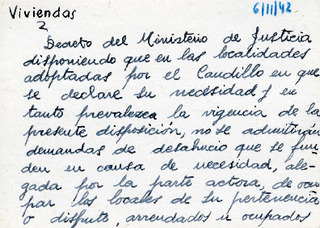 Viviendas
6/11/42
2
Decreto del Ministerio de Justicia
disponiendo que en las localidades
adoptadas por el Caudillo en que
se declare su necesidad y en
tanto prevalezca la vigencia de la
presente disposición, no se admitirán
demandas de desahucio que se fun-
den en causa de necesidad, ale-
gada por la parte actora, de ocu-
par los locales de su pertenencia
o disfrute, arrendados u ocupados